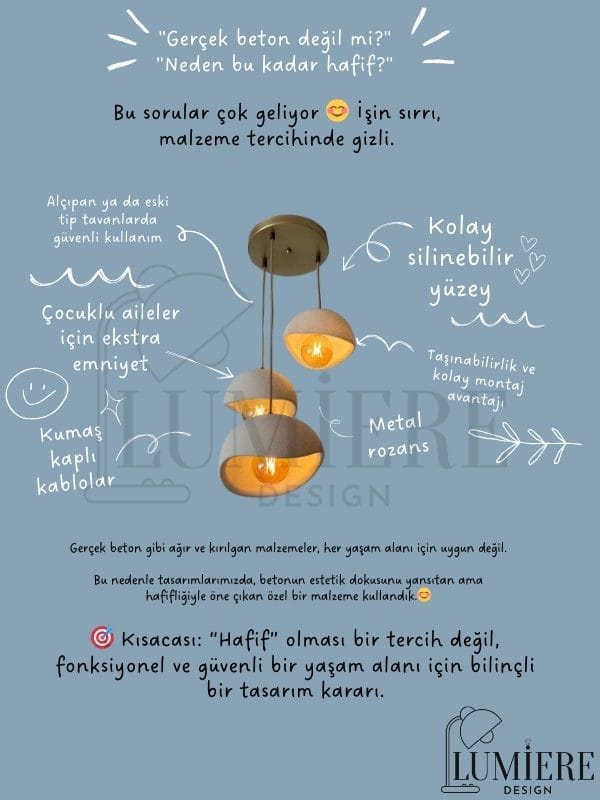 "Gerçek beton değil mi?"
"Neden bu kadar hafif?"
Bu sorular çok geliyor 😊 İşin sırrı,
malzeme tercihinde gizli.
Alçıpan ya da eski
tip tavanlarda
güvenli kullanım
Kolay
silinebilir
yüzey
Çocuklu aileler
için ekstra
emniyet
Taşınabilirlik ve
kolay montaj
avantajı
Kumaş
kaplı
kablolar
Metal
rozans
LUMIERE
DESIGN
Gerçek beton gibi ağır ve kırılgan malzemeler, her yaşam alanı için uygun değil.
Bu nedenle tasarımlarımızda, betonun estetik dokusunu yansıtan ama
hafifliğiyle öne çıkan özel bir malzeme kullandık.😊
🎯 Kısacası: “Hafif” olması bir tercih değil,
fonksiyonel ve güvenli bir yaşam alanı için bilinçli
bir tasarım kararı.
LUMİERE
DESIGN